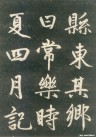 縣東其鄉
日常樂時
夏四月記